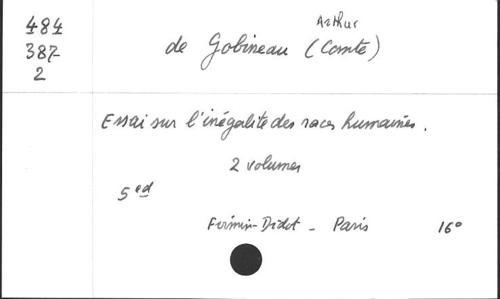 484
387
2
Arthur
de Gobineau (Comte)
Essai sur l'inégalité des races humaines.
2 volumes
5 ed
Firmin-Didot - Paris 16°